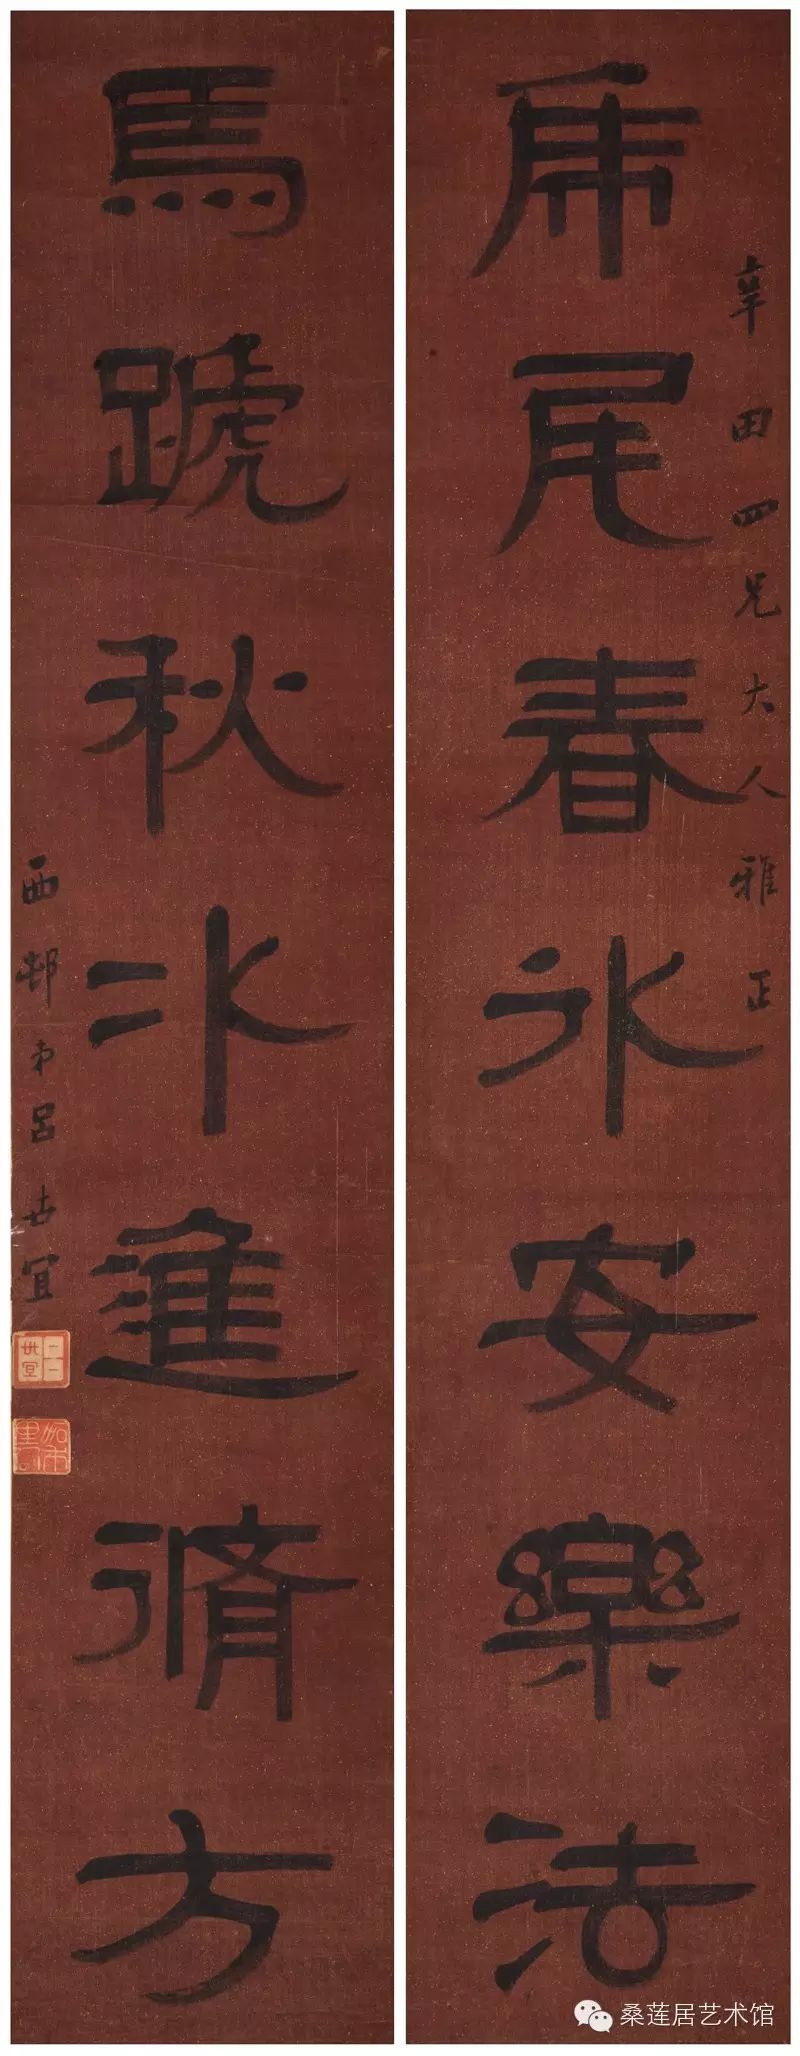 乕尾春氷安樂法
辛田四兄大人雅正
馬蹏秋水進脩方
西邨弟呂世宜
呂世宜
桑莲居艺术馆